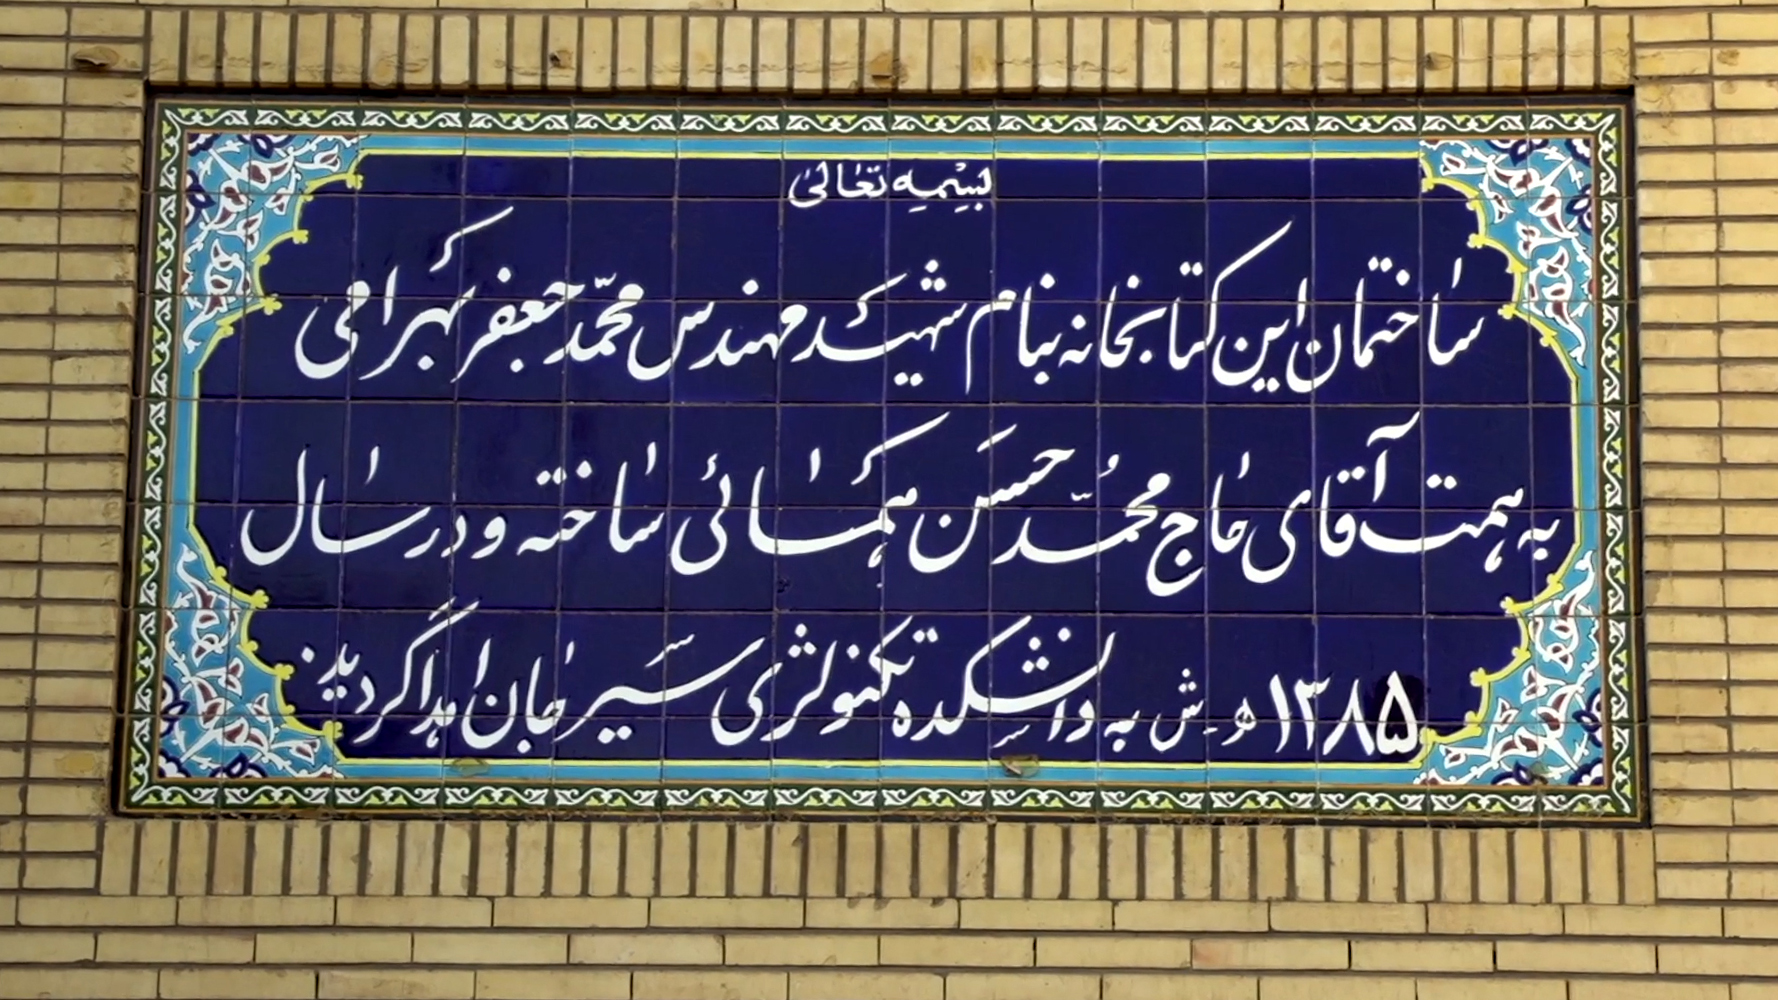 بسمه تعالی
ساختمان این کتابخانه بنام شهید مهندس محمّد جعفر بهرامی
به همت آقای حاج محمّد حسن همسائی ساخته و در سال
۱۳۸۵ ه‍ . ش به دانشکده تکنولژی سیرجان اهدا گردید.